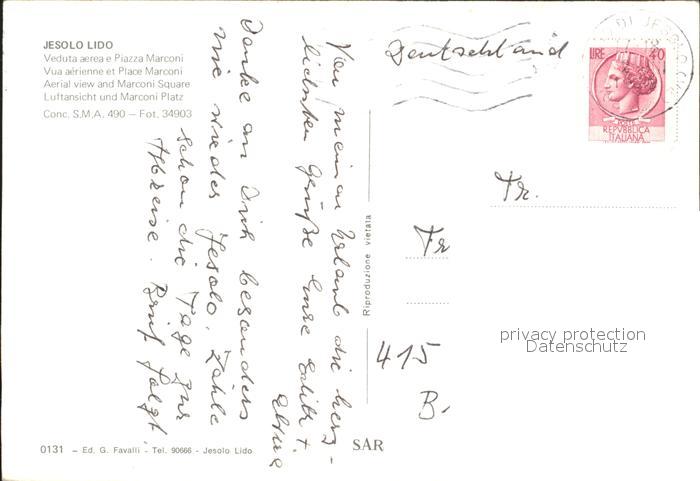 JESOLO LIDO
Veduta aerea e Piazza Marconi
Vua aérienne et Place Marconi
Aerial view and Marconi Square
Luftansicht und Marconi Platz
Conc. S.M.A. 490 — Fot. 34903
Von meinem Urlaub die herz-
lichsten Grüße Eure
Danke an Dich besonders
wie wieder Jesolo. Zähle
schon die Tage zur
Abreise. Brief folgt.
0131 – Ed. G. Favalli - Tel. 90666 - Jesolo Lido
Riproduzione vietata
SAR
Deutschland
DI JESOLO
LIRE 40
POSTE
REPVBBLICA
ITALIANA
Fr.
Fr
415
B.
privacy protection
Datenschutz